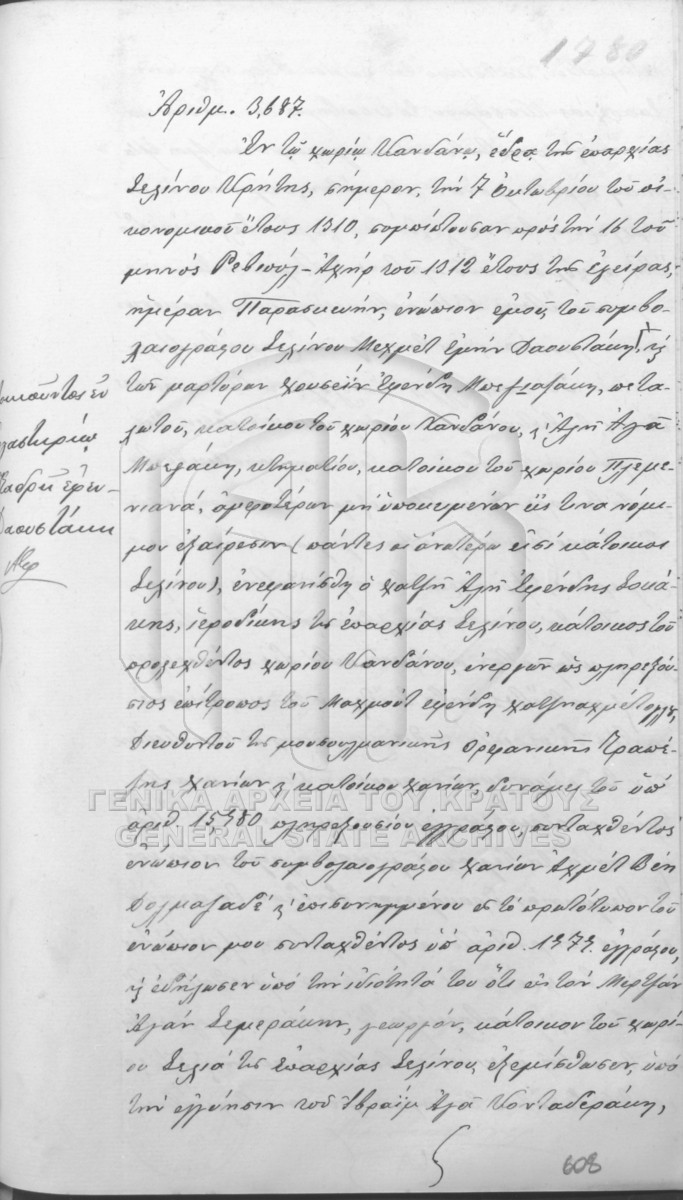 1780
Ἀριθμ. 3,687.
Ἐν τῷ χωρίῳ Κανδάνῳ, ἕδρᾳ τῆς ἐπαρχίας
Σελίνου Κρήτης, σήμερον, τὴν 7 Ὀκτωβρίου τοῦ οἰ-
κονομικοῦ ἔτους 1310, συμπίπτουσαν πρὸς τὴν 16 τοῦ
μηνός Ρεβιούλ-Ἀχήρ τοῦ 1312 ἔτους τῆς ἐγείρας,
ἡμέραν Παρασκευήν, ἐνώπιον ἐμοῦ, τοῦ συμβο-
λαιογράφου Σελίνου Μεχμέτ Ἐμήν Δαουστάκη, καὶ
τῶν μαρτύρων Χουσεΐν Ἐφένδη, πετα-
λωτοῦ, κατοίκου τοῦ χωρίου Κανδάνου, καὶ Ἀλῆ Ἀγᾶ
κτηματίου, κατοίκου τοῦ χωρίου Πλεμε-
νιανά, ἀμφοτέρων μὴ ὑποκειμένων εἴς τινα νόμι-
μον ἐξαίρεσιν (πάντες οἱ ἀνωτέρω εἰσί κάτοικοι
Σελίνου), ἐνεφανίσθη ὁ χατζῆ Ἀλῆ Ἐφένδης
ἱεροδίκης τῆς ἐπαρχίας Σελίνου, κάτοικος τοῦ
προλεχθέντος χωρίου Κανδάνου, ἐνεργῶν ὡς πληρεξού-
σιος ἐπίτροπος τοῦ Μαχμούτ ἐφένδη
Διευθυντοῦ τῆς μουσουλμανικῆς Ὀρφανικῆς Τραπέ-
ζης Χανίων καὶ κατοίκου Χανίων, δυνάμει τοῦ ὑπ'
ἀριθ. 15380 πληρεξουσίου ἐγγράφου, συνταχθέντος
ἐνώπιον τοῦ συμβολαιογράφου Χανίων Ἀχμέτ Βέη
Δολμαζαδέ καὶ ἐπισυνημμένου εἰς τό πρωτότυπον τοῦ
ἐνώπιόν μου συνταχθέντος ὑπ' ἀριθ. 1373. ἐγγράφου,
καὶ ἐδήλωσεν ὑπό τὴν ἰδιότητά του ὅτι εἰς τόν Μερτζάν
Ἀγᾶν Σεμεράκην, γεωργόν, κάτοικον τοῦ χωρί-
ου Σελιά τῆς Ἐπαρχίας Σελίνου, ἐξεμίσθωσεν, ὑπό
τὴν ἐγγύησιν τοῦ Ἰβραΐμ Ἀγᾶ Κονταδεράκη,
ἐφέν-
Δαουστάκη
ΓΕΝΙΚΑ ΑΡΧΕΙΑ ΤΟΥ ΚΡΑΤΟΥΣ
GENERAL STATE ARCHIVES
608